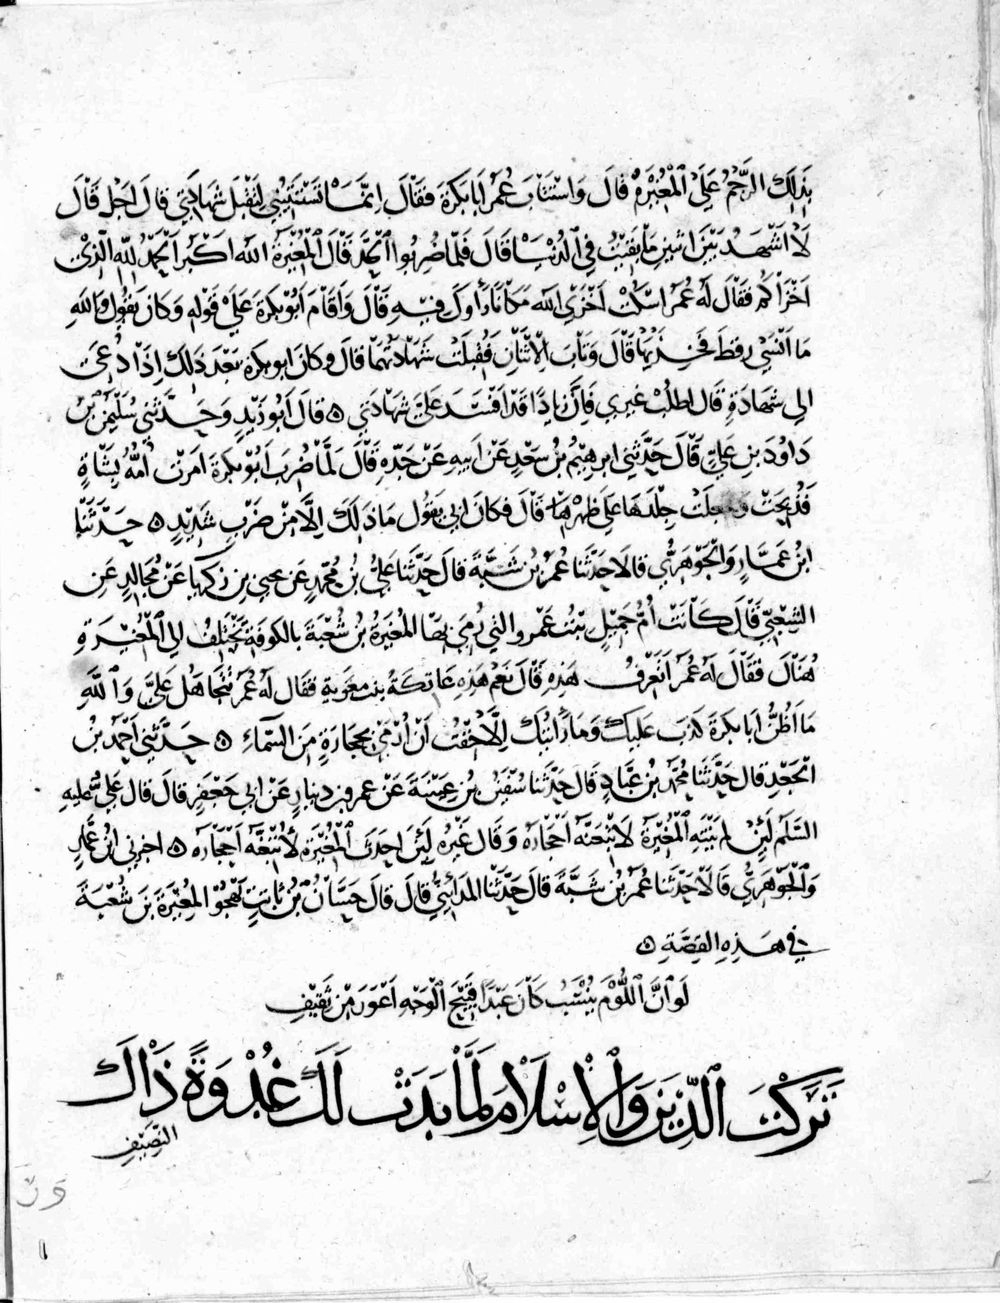 بذلك الرجم على المغيرة قال واستتاب عمر ابا بكرة فقال انما تستتيبني لتقبل شهادتي قال اجل قال
لا اشهد بين اثنين ما بقيت في الدنيا قال فلما ضربوا الحد قال المغيرة الله اكبر الحمد لله الذي
اخزاكم فقال له عمر اسكت اخزى الله مكانا رأوك فيه قال واقام ابو بكرة على قوله وكان يقول والله
ما انسى رقط فخذيها قال وتاب الاثنان فقبلت شهادتهما قال وكان ابو بكرة بعد ذلك اذا دعي
الى شهادة قال اطلب غيري فان زيادا قد افسد علي شهادتي ه قال ابو زيد وحدثني سليمن بن
داود بن علي قال حدثني ابرهيم بن سعد عن ابيه عن جده قال لما ضرب ابو بكرة امرت امه بشاة
فذبحت وجعلت جلدها على ظهره قال فكان ابي يقول ما ذلك الا من ضرب شديد ه حدثنا
ابن عمار والجوهري قالا حدثنا عمر بن شبة قال حدثنا علي بن محمد عن يحيى بن زكريا عن مجالد عن
الشعبي قال كانت ام جميل بنت عمر والتي رمي بها المغيرة بن شعبة بالكوفة تختلف الى المغيرة
هناك فقال له عمر اتعرف هذه قال نعم هذه عاتكة بنت معوية فقال له عمر تتجاهل علي والله
ما اظن ابا بكرة كذب عليك وما رايتك الا خفت ان ارمى بحجارة من السماء ه حدثني احمد بن
الجعد قال حدثنا محمد بن عباد قال حدثنا سفين بن عيينة عن عمرو بن دينار عن ابي جعفر قال قال علي عليه
السلم لئن لم ينته المغيرة لاتبعنه احجاره وقال غيره لئن اخذت المغيرة لاتبعنه احجاره ه اخبرني ابن عمار
والجوهري قالا حدثنا عمر بن شبة قال حدثنا المدائني قال قال حسان بن ثابت يهجو المغيرة بن شعبة
في هذه القصة ه
لو ان اللوم ينسب كان عبدا قبيح الوجه اعور من ثقيف
تركت الدين والاسلام لما بدت لك غدوة ذاك
النصيف